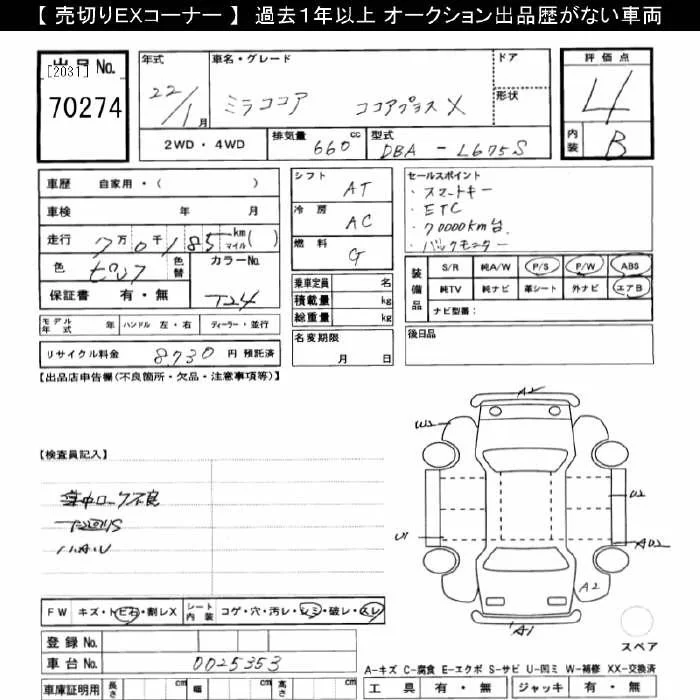 【 売切りEXコーナー 】 過去1年以上 オークション出品歴がない車両
出品No.
[2031]
70274
年式
22/1月
車名・グレード
ミラココア ココアプラスX
ドア
形状
2WD・4WD
排気量 660 cc
型式 DBA - L675S
評価点
4
内装 B
車歴 自家用・( )
車検 年 月
走行 7万0千185 km マイル ( )
色 ピンク 色替
カラーNo. T24
保証書 有・無
モデル年式 年 ハンドル 左・右 ディーラー・並行
リサイクル料金 8,730 円 預託済
シフト AT
冷房 AC
燃料 G
乗車定員 名
積載量 kg
総重量 kg
名変期限
月 日
セールスポイント
・スマートキー
・ETC
・70000km台
・バックモニター
装備品
S/R 純A/W P/S P/W ABS
純TV 純ナビ 革シート 外ナビ エアB
ナビ型番:
後日品
【出品店申告欄(不良箇所・欠品・注意事項等)】
【検査員記入】
ロック不良
A2
W2
U2
U1
AU2
A2
A1
スペア
FW キズ・ト ビ石・割レX シート内装 コゲ・穴・汚レ・シミ・破レ・スレ
登録No.
車台No. 0025353
車庫証明用 長さ cm 幅 cm 高さ cm
A-キズ C-腐食 E-エクボ S-サビ U-凹ミ W-補修 XX-交換済
工具 有・無 ジャッキ 有・無